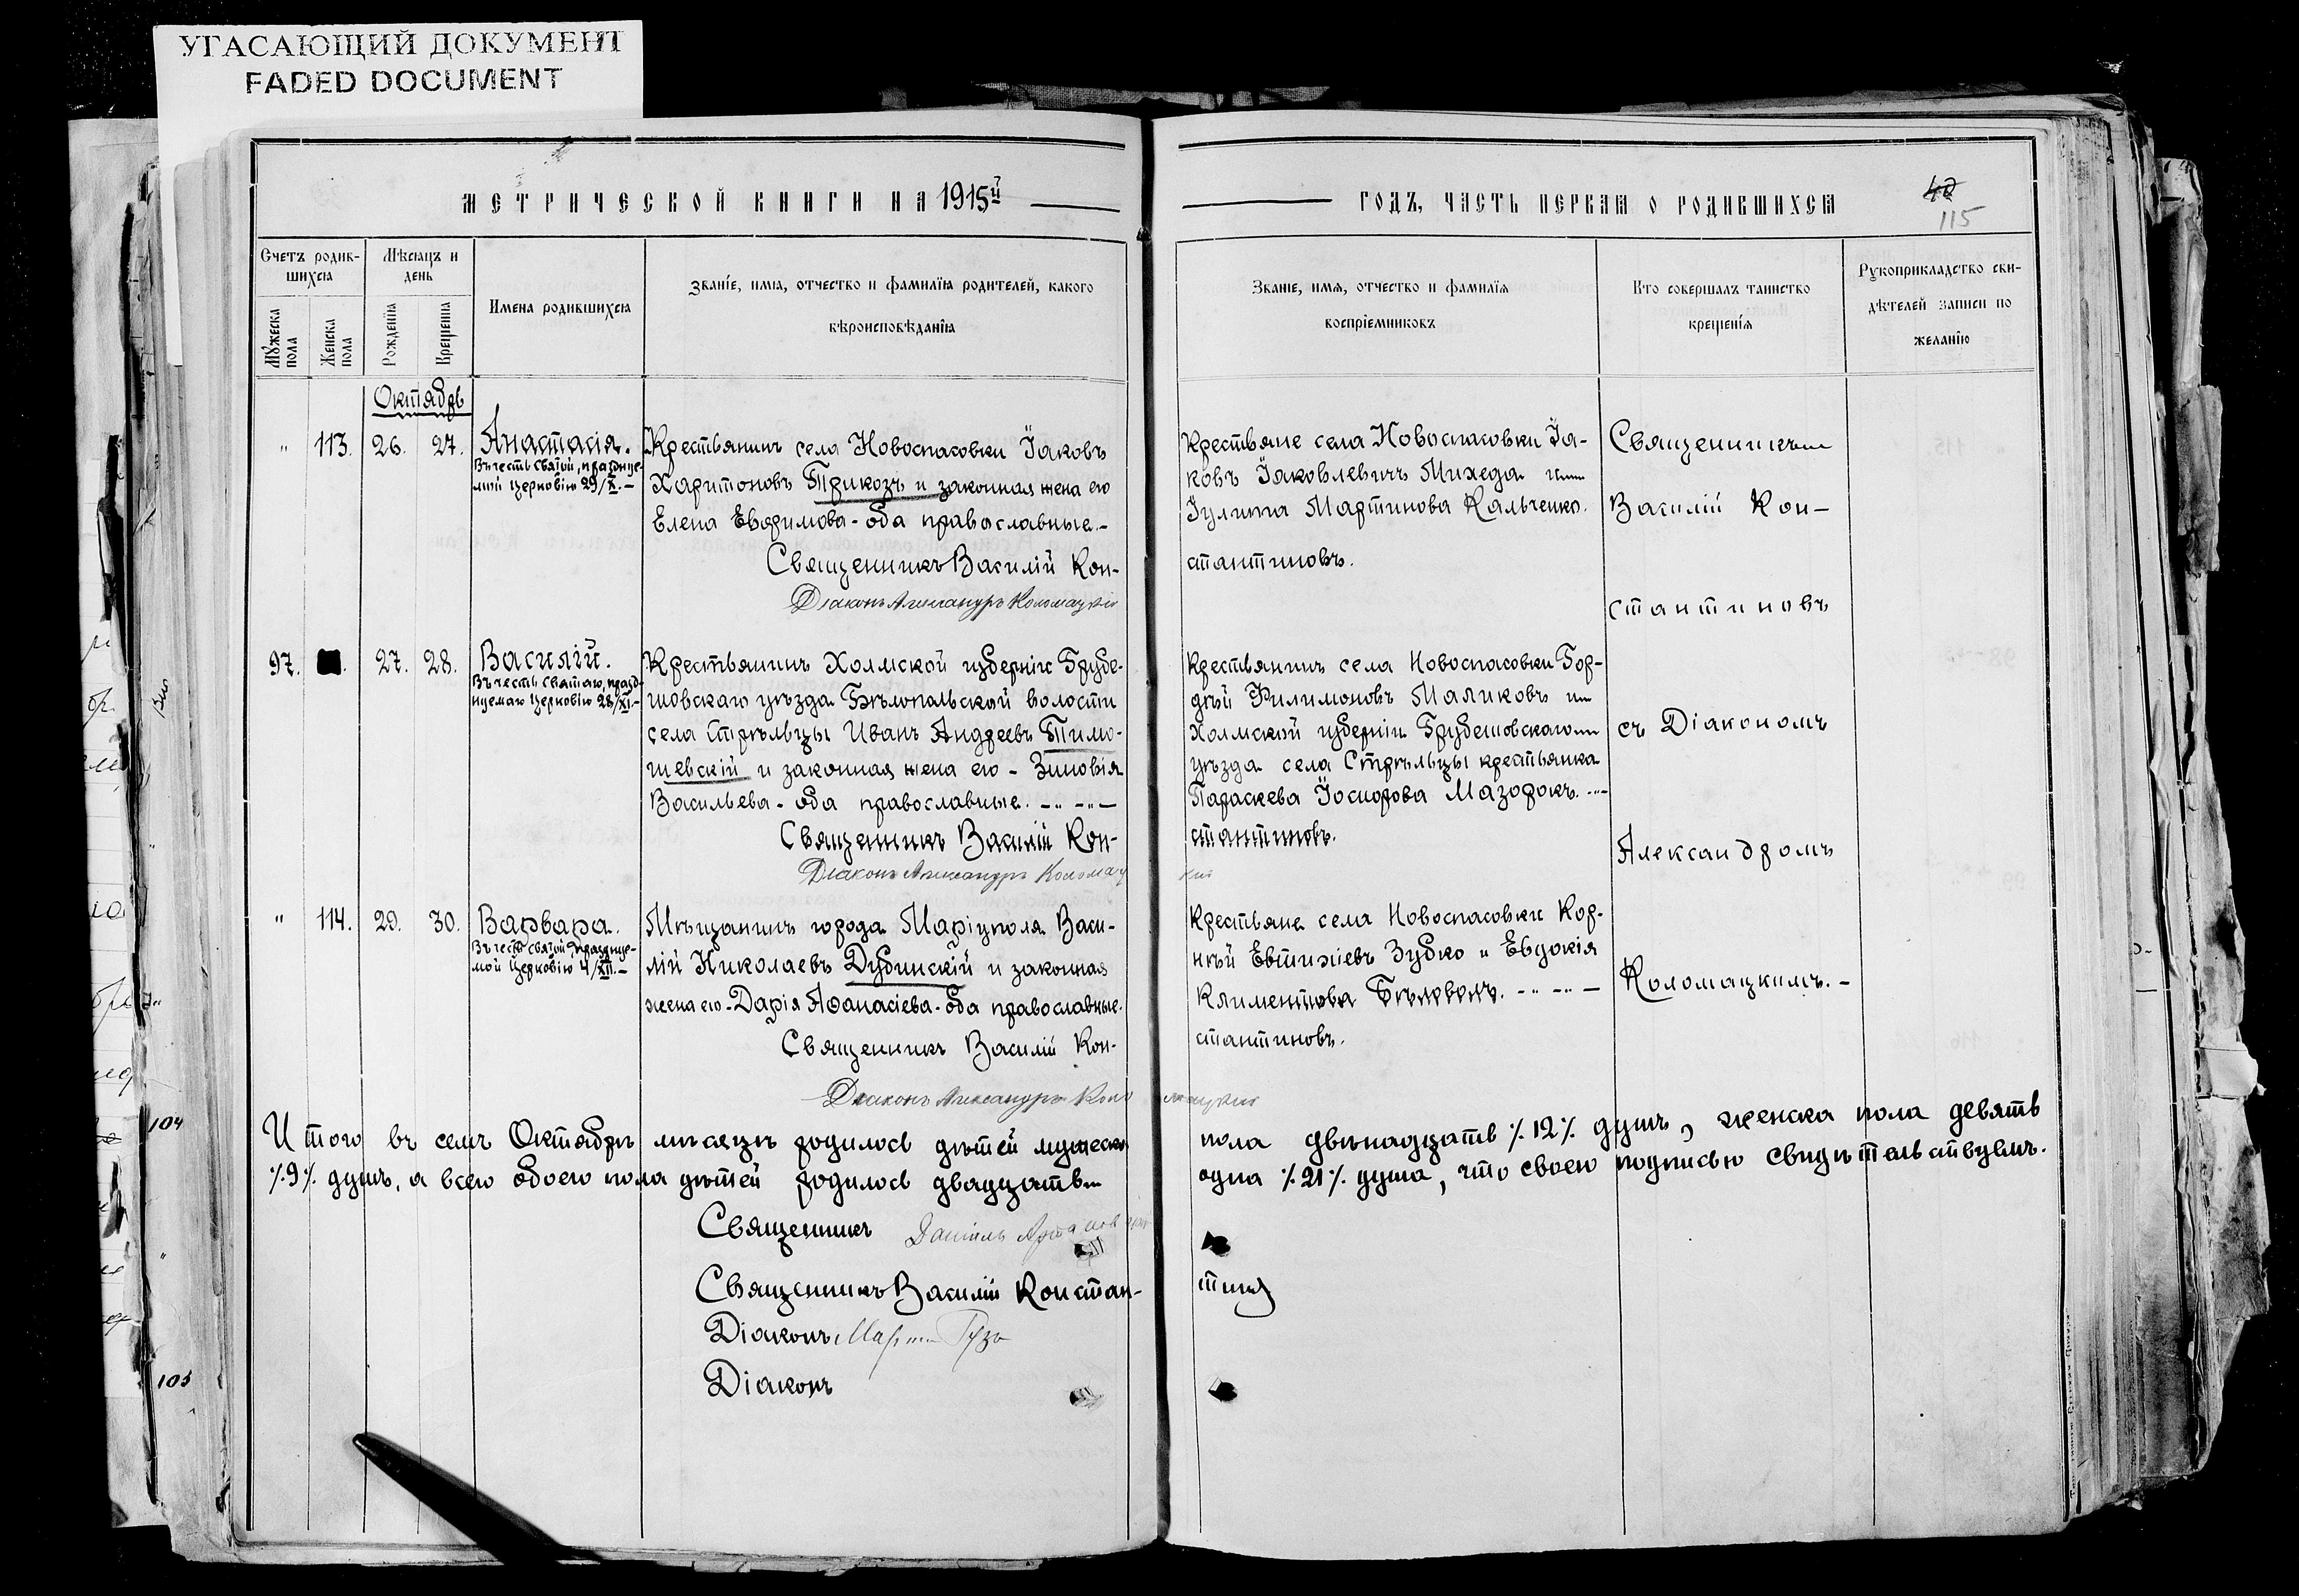 УГАСАЮЩИЙ ДОКУМЕНТ
FADED DOCUMENT
МЕТРИЧЕСКОЙ КНИГИ НА 1915й
Счетъ родив-
шихся
Мѣсяцъ и
день
Мужеска
пола
Женска
пола
Рожденія
Крещенія
Имена родившихся
Званіе, имя, отчество и фамилія родителей, какого
вѣроисповѣданія
Октябрь
" 113. 26. 27. Анастасія.
Въ честь святой, празднуе-
мой церковію 29/X.-
Крестьянинъ села Новоспасовки Іаковъ
Харитоновъ Трикозъ и законная жена его
Елена Евфимова - оба православные.-
Священникъ Василій Кон-
Діаконъ Александръ Коломацкій
97. 27. 28. Василій.
Въ честь святаго, празд-
нуемаго церковію 28/XI.-
Крестьянинъ Холмской губерніи Грубе-
шовскаго уѣзда Бѣлопальской волости
села Стрѣльцы Иванъ Андреевъ Тимо-
шевскій и законная жена его - Зиновія
Васильева - оба православные.
Священникъ Василій Кон-
Діаконъ Александръ Коломац
" 114. 29. 30. Варвара.
Въ честь святой празднуе-
мой церковію 4/XII.-
Мѣщанинъ города Маріуполя Васи-
лій Николаевъ Дубинскій и законная
жена его - Дарія Аѳанасіева - оба православные.
Священникъ Василій Кон-
Діаконъ Александръ Коло
Итого въ семъ Октябрѣ мѣсяцѣ родилось дѣтей мужеска
%9% душъ, а всего обоего пола дѣтей родилось двадцать
Священникъ Даніилъ
Священникъ Василій Констан-
Діаконъ
Діаконъ
104
105
ГОДЪ, ЧАСТЬ ПЕРВАЯ О РОДИВШИХСЯ
115
Званіе, имя, отчество и фамилія
воспріемниковъ
Кто совершалъ таинство
крещенія
Рукоприкладство сви-
дѣтелей записи по
желанію
Крестьяне села Новоспасовки Іа-
ковъ Іаковлевичъ Михеда и
Іулита Мартинова Кальченко.
стантиновъ.
Крестьянинъ села Новоспасовки Гор-
дѣй Филимоновъ Маликовъ и
Холмской губерніи Грубешовскаго
уѣзда села Стрѣльцы крестьянка
Параскева Іосифова Мазофокъ.
стантиновъ.
кій
Крестьяне села Новоспасовки Кор-
нѣй Евтихіевъ Зубко и Евдокія
Климентова Бѣловолъ.
стантиновъ.
мацкій
Священникъ
Василій Кон-
стантиновъ
съ Діакономъ
Александромъ
Коломацкимъ.-
пола двѣнадцать %12% душъ, женска пола девять
одна %21% душа, что своею подписью свидѣтельствуемъ.
тинъ